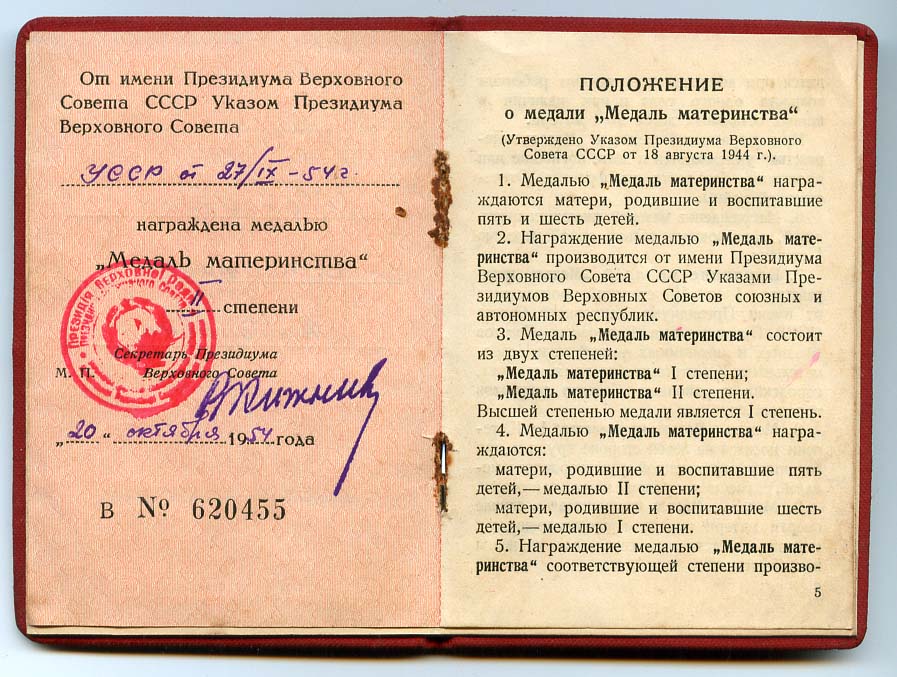 От имени Президиума Верховного
Совета СССР Указом Президиума
Верховного Совета
УССР от 27/IX - 54 г.
награждена медалью
„Медаль материнства“
II степени
Секретарь Президиума
М. П. Верховного Совета
„20“ октября 1954 года
В № 620455
ПОЛОЖЕНИЕ
о медали „Медаль материнства“
(Утверждено Указом Президиума Верховного
Совета СССР от 18 августа 1944 г.).
1. Медалью „Медаль материнства“ награ-
ждаются матери, родившие и воспитавшие
пять и шесть детей.
2. Награждение медалью „Медаль мате-
ринства“ производится от имени Президиума
Верховного Совета СССР Указами Пре-
зидиумов Верховных Советов союзных и
автономных республик.
3. Медаль „Медаль материнства“ состоит
из двух степеней:
„Медаль материнства“ I степени;
„Медаль материнства“ II степени.
Высшей степенью медали является I степень.
4. Медалью „Медаль материнства“ награ-
ждаются:
матери, родившие и воспитавшие пять
детей,—медалью II степени;
матери, родившие и воспитавшие шесть
детей,—медалью I степени.
5. Награждение медалью „Медаль мате-
ринства“ соответствующей степени произво-
5